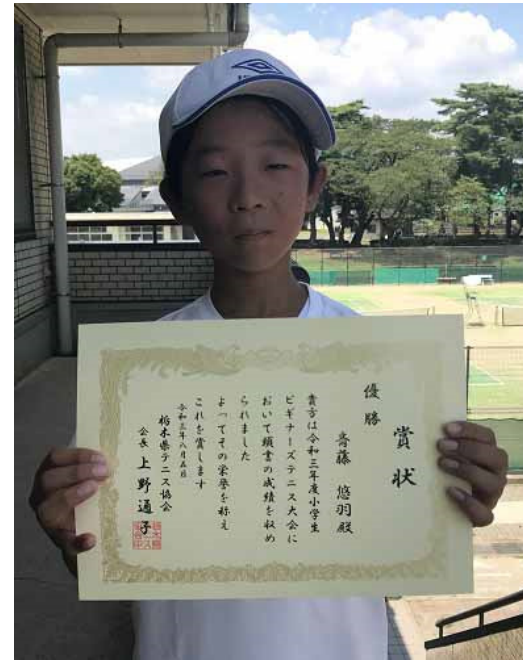 賞状
優勝
齊藤 悠羽殿
貴方は令和三年度小学生
ビギナーズテニス大会に
おいて頭書の成績を収め
られました
よってその栄誉を称え
これを賞します
令和三年八月五日
栃木県テニス協会
会長 上野通子